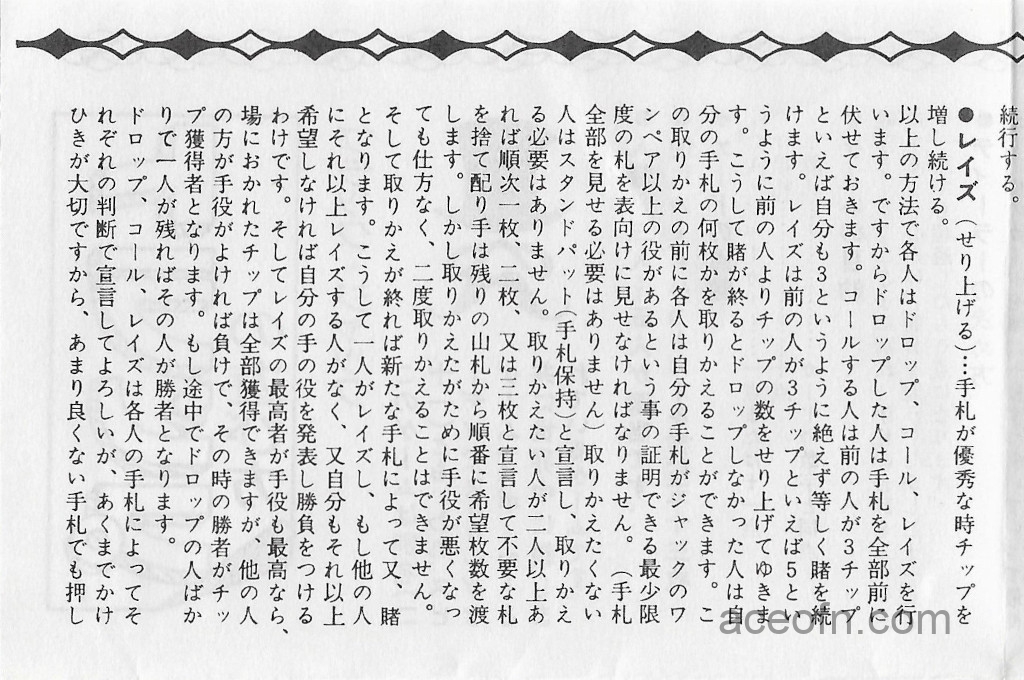 続行する。
●レイズ（せり上げる）…手札が優秀な時チップを
増し続ける。
以上の方法で各人はドロップ、コール、レイズを行
います。ですからドロップした人は手札を全部前に
伏せておきます。コールする人は前の人が3チップ
といえば自分も3というように絶えず等しく賭を続
けます。レイズは前の人が3チップといえば5とい
うように前の人よりチップの数をせり上げてゆきま
す。こうして賭が終るとドロップしなかった人は自
分の手札の何枚かを取りかえることができます。こ
の取りかえの前に各人は自分の手札がジャックのワ
ンペア以上の役があるという事の証明できる最少限
度の札を表向けに見せなければなりません。（手札
全部を見せる必要はありません）取りかえたくない
人はスタンドパット（手札保持）と宣言し、取りかえ
る必要はありません。取りかえたい人が二人以上あ
れば順次一枚、二枚、又は三枚と宣言して不要な札
を捨て配り手は残りの山札から順番に希望枚数を渡
します。しかし取りかえたがために手役が悪くなっ
ても仕方なく、二度取りかえることはできません。
そして取りかえが終れば新たな手札によって又、賭
となります。こうして一人がレイズし、もし他の人
にそれ以上レイズする人がなく、又自分もそれ以上
希望しなければ自分の手の役を発表し勝負をつける
わけです。そしてレイズの最高者が手役も最高なら、
場におかれたチップは全部獲得できますが、他の人
の方が手役がよければ負けで、その時の勝者がチッ
プ獲得者となります。もし途中でドロップの人ばか
りで一人が残ればその人が勝者となります。
ドロップ、コール、レイズは各人の手札によってそ
れぞれの判断で宣言してよろしいが、あくまでかけ
ひきが大切ですから、あまり良くない手札でも押し
aceoin.com